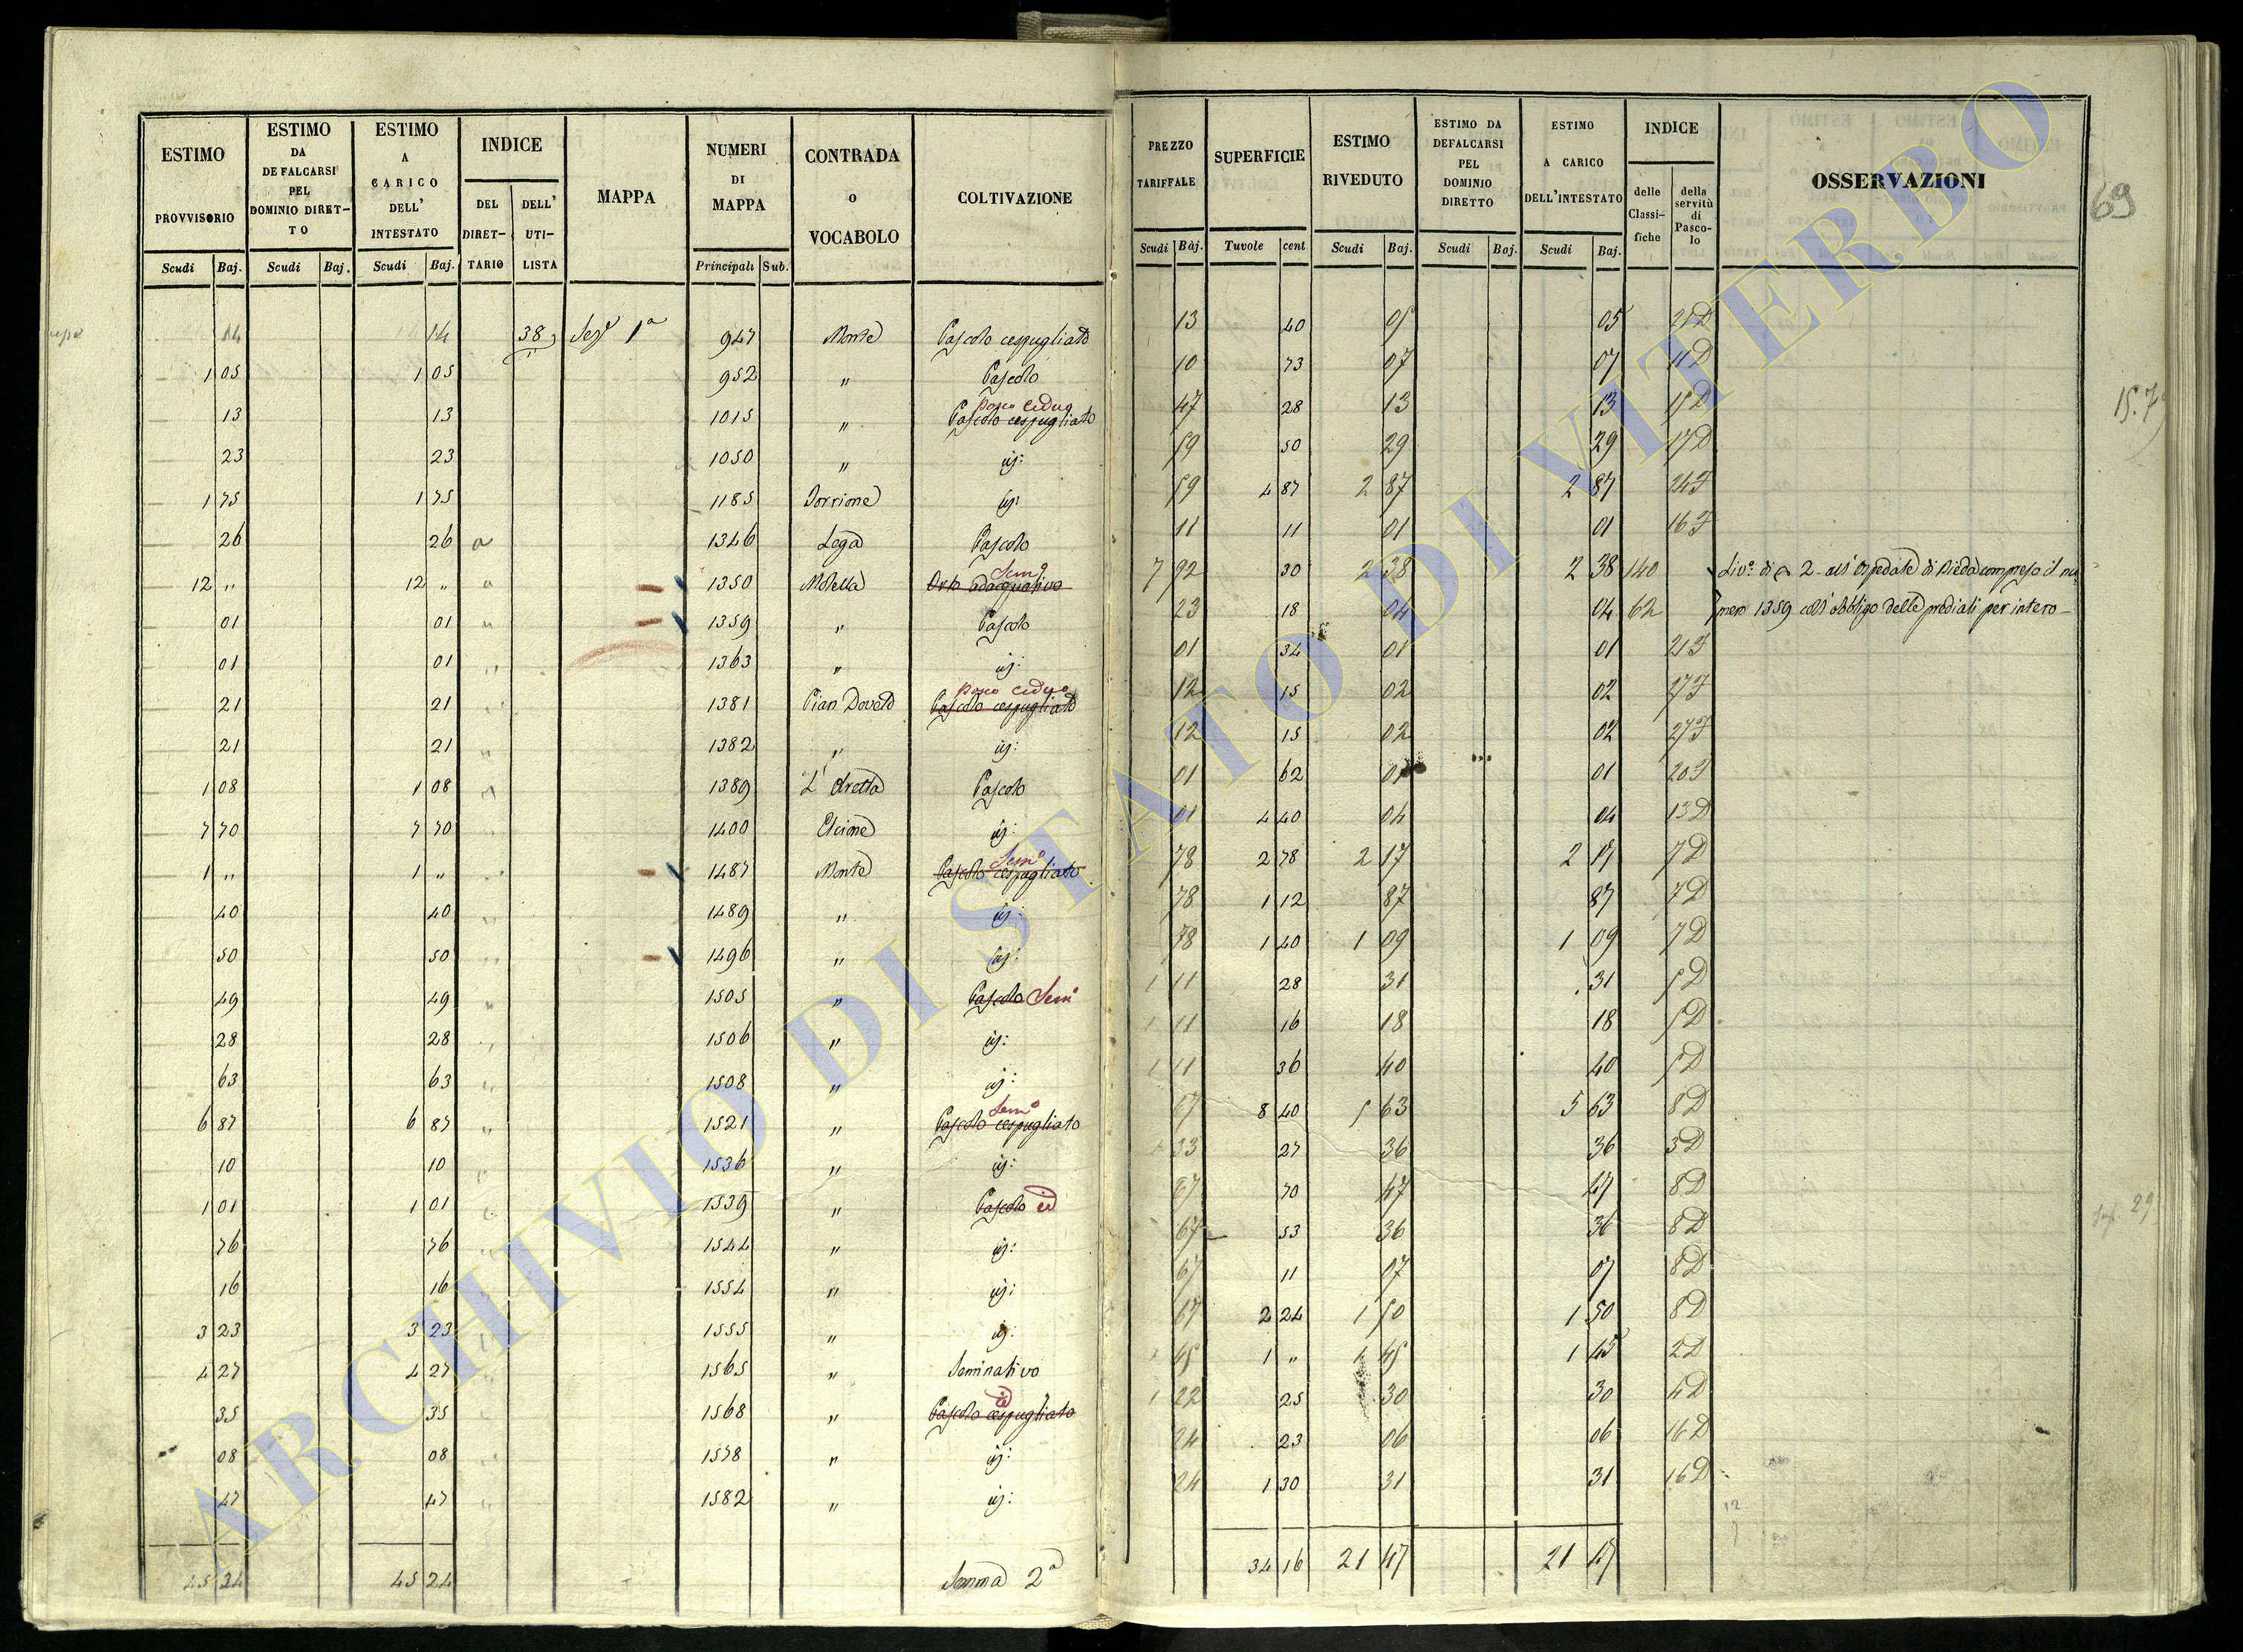 ESTIMO PROVVISORIO | ESTIMO DA DEFALCARSI PEL DOMINIO DIRETTO | ESTIMO A CARICO DELL' INTESTATO | INDICE | MAPPA | NUMERI DI MAPPA | CONTRADA O VOCABOLO | COLTIVAZIONE | PREZZO TARIFFALE | SUPERFICIE | ESTIMO RIVEDUTO | ESTIMO DA DEFALCARSI PEL DOMINIO DIRETTO | ESTIMO A CARICO DELL'INTESTATO | INDICE | OSSERVAZIONI
DEL DIRETTARIO | DELL' UTILISTA | delle Classifiche | della servitù di Pascolo
Scudi | Baj. | Scudi | Baj. | Scudi | Baj. | Principali | Sub. | Scudi | Baj. | Tavole | cent | Scudi | Baj. | Scudi | Baj. | Scudi | Baj.
69
14 | 14 | 38 | Sez. 1a | 947 | Monte | Pascolo cespugliato | 13 | 40 | 05 | 05 | 25D
1 05 | 1 05 | 952 | " | Pascolo | 10 | 73 | 07 | 07 | 11D
13 | 13 | 1015 | " | Pascolo cespugliato | 47 | 28 | 13 | 13 | 15D
23 | 23 | 1050 | " | id: | 59 | 50 | 29 | 29 | 17D
1 75 | 1 75 | 1185 | Torrione | id: | 59 | 4 87 | 2 87 | 2 87 | 24F
26 | 26 | 1346 | Lega | Pascolo | 11 | 11 | 01 | 01 | 16F
12 " | 12 " | 1350 | Motella | Orto adacquativo Semo | 7 92 | 30 | 2 38 | 2 38 | 140 | Livo: di 2 all'Ospedale di Bieda compreso il nu-
01 | 01 | 1359 | " | Pascolo | 23 | 18 | 04 | 04 | 62 | mero 1359 coll'obbligo delle prediali per intero
01 | 01 | 1363 | " | id: | 01 | 34 | 01 | 01 | 21F
21 | 21 | 1381 | Pascolo cespugliato | 12 | 15 | 02 | 02 | 27F
21 | 21 | 1382 | " | id: | 12 | 15 | 02 | 02 | 27F
1 08 | 1 08 | 1389 | Pascolo | 01 | 62 | 01 | 01 | 20F
7 70 | 7 70 | 1400 | id: | 01 | 4 40 | 04 | 04 | 13D
1 " | 1 " | 1487 | Monte | Pascolo cespugliato Semo | 78 | 2 78 | 2 17 | 2 17 | 7D
40 | 40 | 1489 | " | id: | 78 | 1 12 | 87 | 87 | 7D
50 | 50 | 1496 | " | id: | 78 | 1 40 | 1 09 | 1 09 | 7D
49 | 49 | 1505 | " | Pascolo Semo | 1 11 | 28 | 31 | 31 | 5D
28 | 28 | 1506 | " | id: | 1 11 | 16 | 18 | 18 | 5D
63 | 63 | 1508 | " | id: | 1 11 | 36 | 40 | 40 | 5D
6 87 | 6 87 | 1521 | " | Pascolo cespugliato Semo | 67 | 8 40 | 5 63 | 5 63 | 8D
10 | 10 | 1536 | " | id: | 1 33 | 27 | 36 | 36 | 3D
1 01 | 1 01 | 1539 | " | Pascolo id | 67 | 70 | 47 | 47 | 8D
76 | 76 | 1544 | " | id: | 67 | 53 | 36 | 36 | 8D
16 | 16 | 1554 | " | id: | 67 | 11 | 07 | 07 | 8D
3 23 | 3 23 | 1555 | " | id: | 67 | 2 24 | 1 50 | 1 50 | 8D
4 27 | 4 27 | 1565 | " | Seminativo | 1 45 | 1 " | 1 45 | 1 45 | 2D
35 | 35 | 1568 | " | Pascolo cespugliato id | 1 22 | 25 | 30 | 30 | 4D
08 | 08 | 1578 | " | id: | 24 | 23 | 06 | 06 | 16D
47 | 47 | 1582 | " | id: | 24 | 1 30 | 31 | 31 | 16D
45 24 | 45 24 | Somma 2a | 34 16 | 21 47 | 21 47
ARCHIVIO DI STATO DI VITERBO